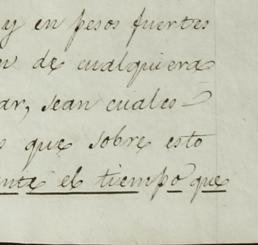 y en pesos fuertes
n de cualquiera
ar, sean cuales-
s que sobre esto
ente el tiempo que